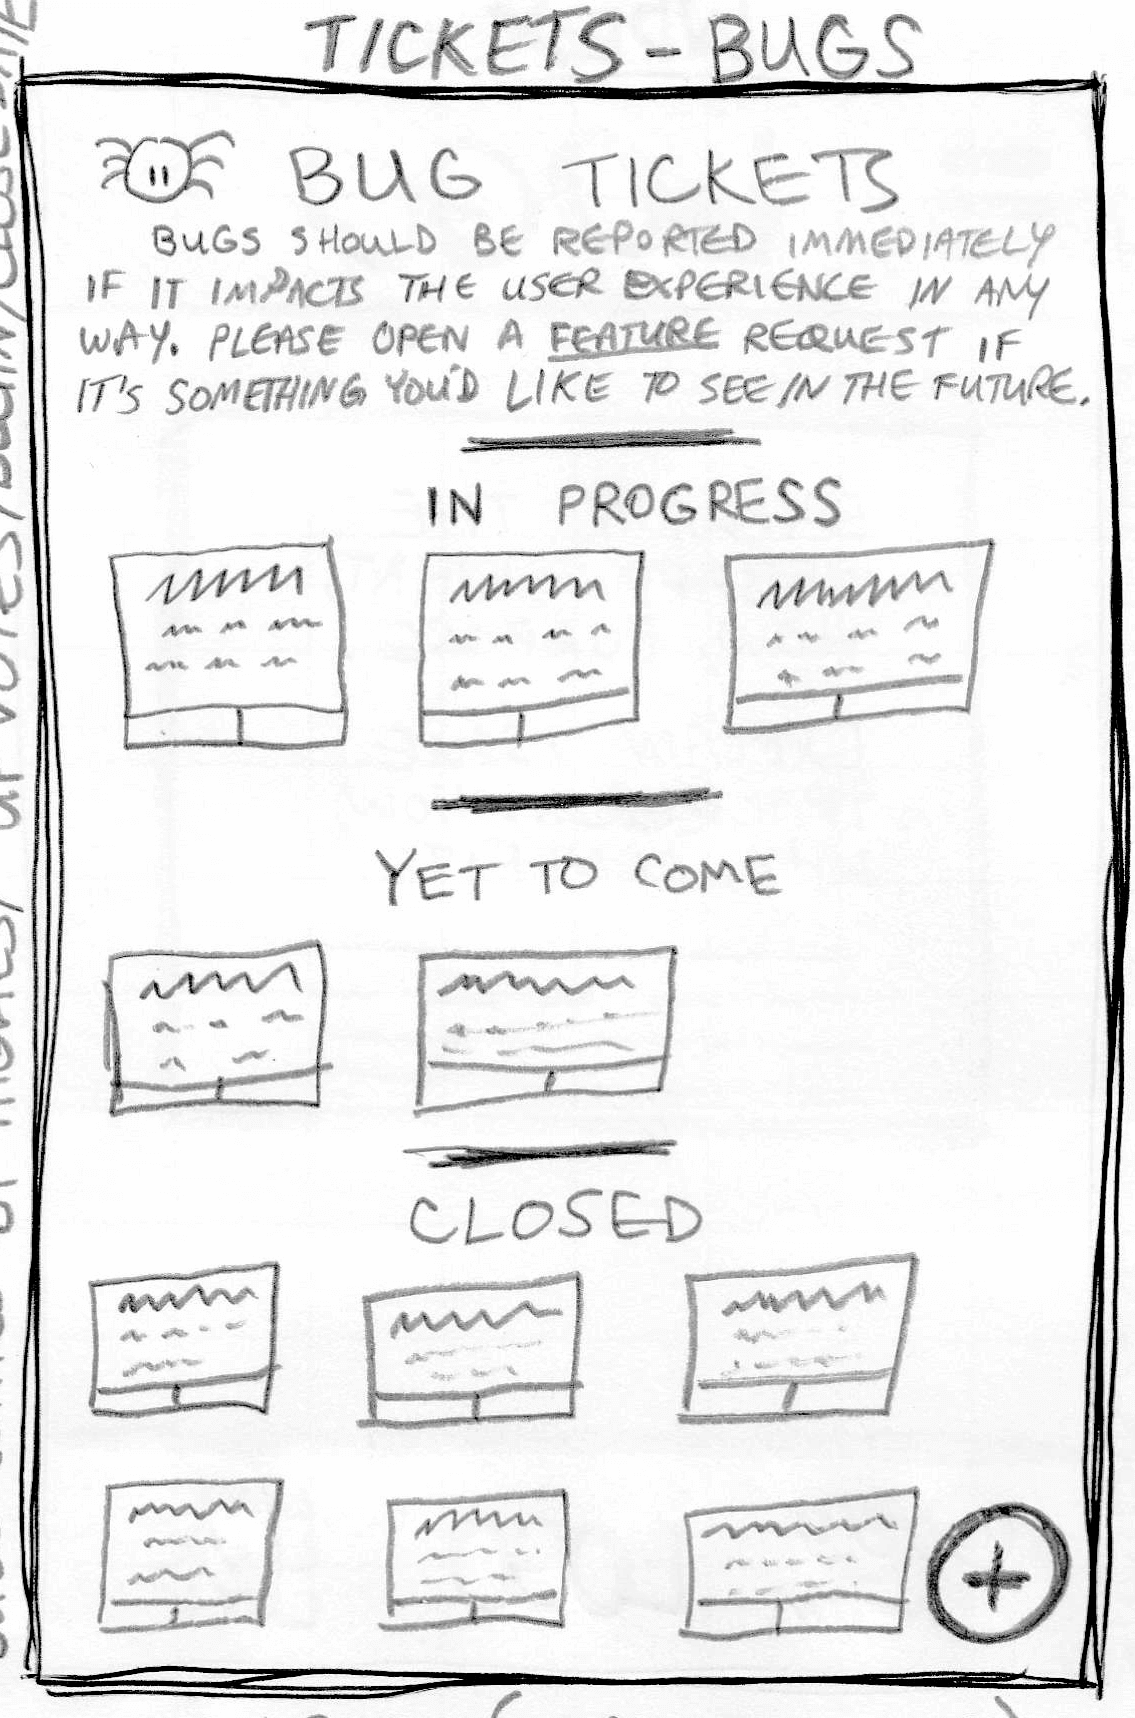 TICKETS - BUGS
BUG TICKETS
BUGS SHOULD BE REPORTED IMMEDIATELY
IF IT IMPACTS THE USER EXPERIENCE IN ANY
WAY. PLEASE OPEN A FEATURE REQUEST IF
IT'S SOMETHING YOU'D LIKE TO SEE IN THE FUTURE.
IN PROGRESS
YET TO COME
CLOSED
+